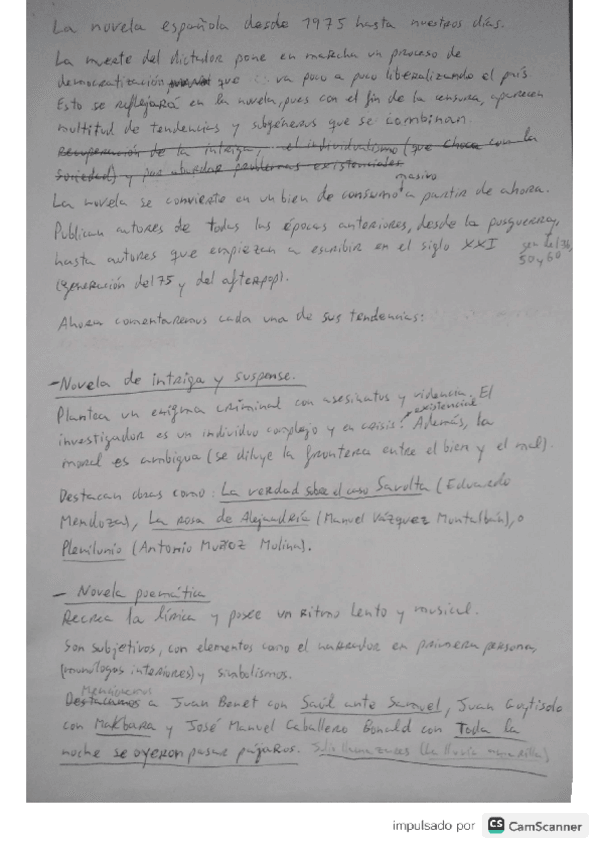 La novela española desde 1975 hasta nuestros días.
La muerte del dictador pone en marcha un proceso de
democratización que va poco a poco liberalizando el país.
Esto se reflejará en la novela, pues con el fin de la censura, aparecen
multitud de tendencias y subgéneros que se combinan.
Recuperación de la intriga, el individualismo (que choca con la
sociedad) y por abordar problemas existenciales
masivo
La novela se convierte en un bien de consumo a partir de ahora.
Publican autores de todas las épocas anteriores, desde la posguerra,
hasta autores que empiezan a escribir en el siglo XXI
gen del 36,
50 y 60
(generación del 75 y del afterpop).
Ahora comentaremos cada una de sus tendencias:
- Novela de intriga y suspense.
Plantea un enigma criminal con asesinatos y violencia. El
existencial
investigador es un individuo complejo y en crisis. Además, la
moral es ambigua (se diluye la frontera entre el bien y el mal).
Destacan obras como: La verdad sobre el caso Savolta (Eduardo
Mendoza), La rosa de Alejandría (Manuel Vázquez Montalbán), o
Plenilunio (Antonio Muñoz Molina).
- Novela poemática
Recrea la lírica y posee un ritmo lento y musical.
Son subjetivos, con elementos como el narrador en primera persona,
(monólogos interiores) y simbolismos.
Mencionamos
Destacamos a Juan Benet con Saúl ante Samuel, Juan Goytisolo
con Makbara y José Manuel Caballero Bonald con Toda la
noche se oyeron pasar pájaros. Julio Llamazares (La lluvia amarilla)
impulsado por CS CamScanner